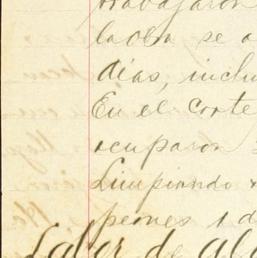 trabajaron
la obra se a
días, inclu
En el corte
ocuparon
Limpiando
peones 1 d
Labor de alb